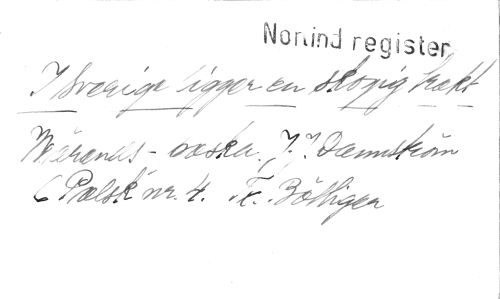 Nomind register
I Sverige ligger en skogig trakt
Wärends-vaskor. J. J. Dannström
C Polsk nr. 4. Fr. Böttiger